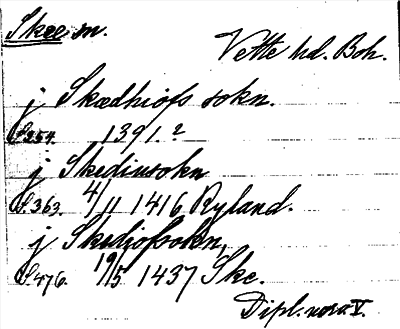 Skee sn.
Vette hd. Boh.
j Skædhiofs sokn.
S. 254. 1391.?
j Skediusokn
S. 363. 4/11 1416 Ryland.
j Skedjofsokn,
S. 476. 19/5 1437 Ske.
Dipl. norv. V.